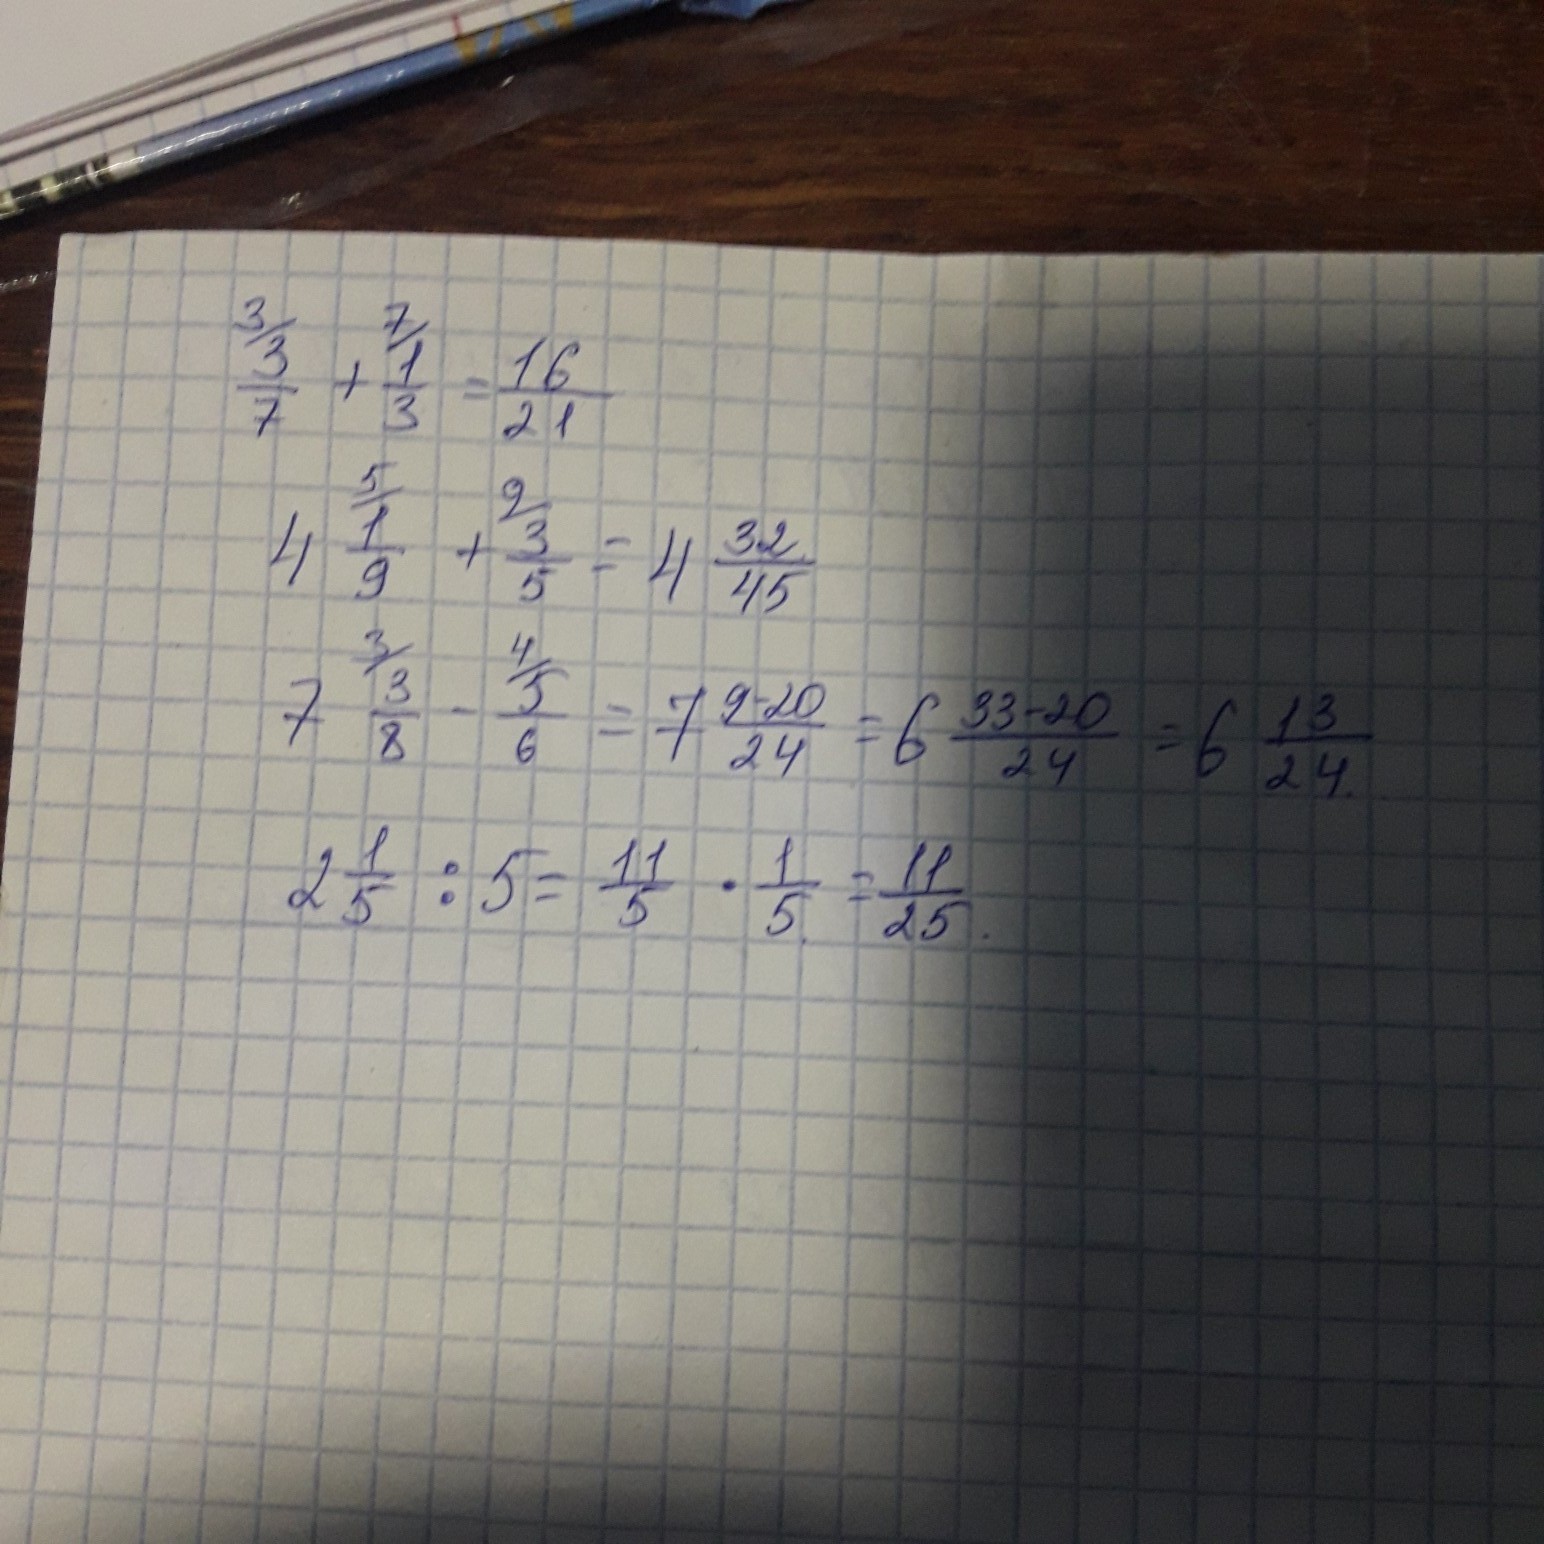 3/ 3/7 + 7/ 1/3 = 16/21
4 5/ 1/9 + 9/ 3/5 = 4 32/45
7 3/ 3/8 - 4/ 5/6 = 7 9-20/24 = 6 33-20/24 = 6 13/24.
2 1/5 : 5 = 11/5 · 1/5 = 11/25.